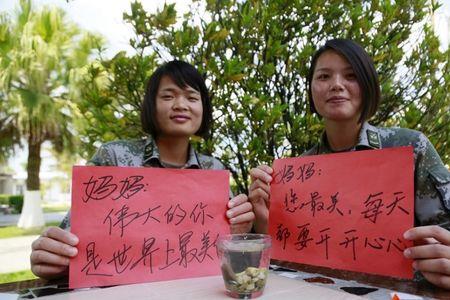 妈妈：
伟大的你
是世界上最美
妈妈：
您最美，每天
都要开开心心